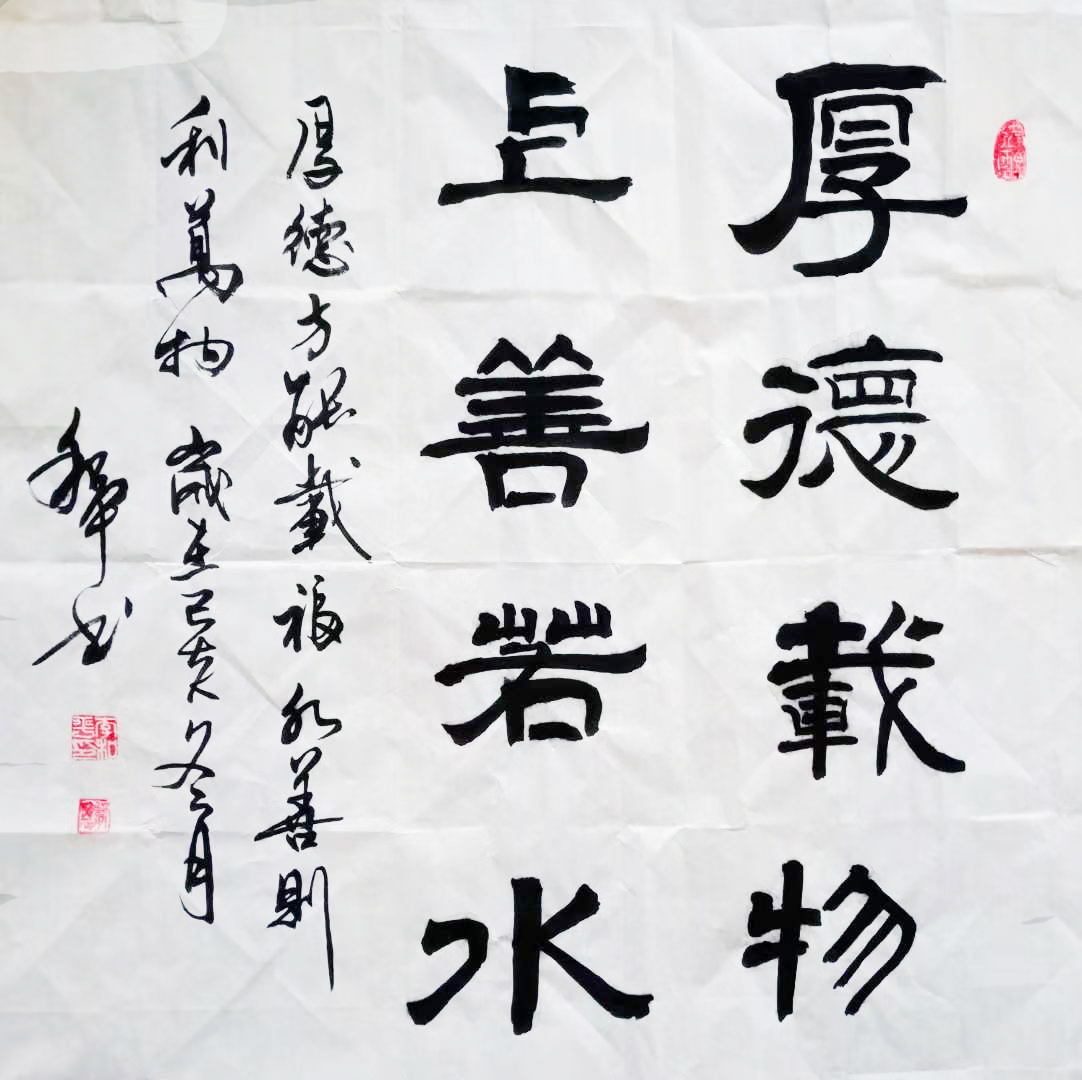 厚德載物
上善若水
厚德方能載福 水善則
利萬物 歲在己亥冬月
書